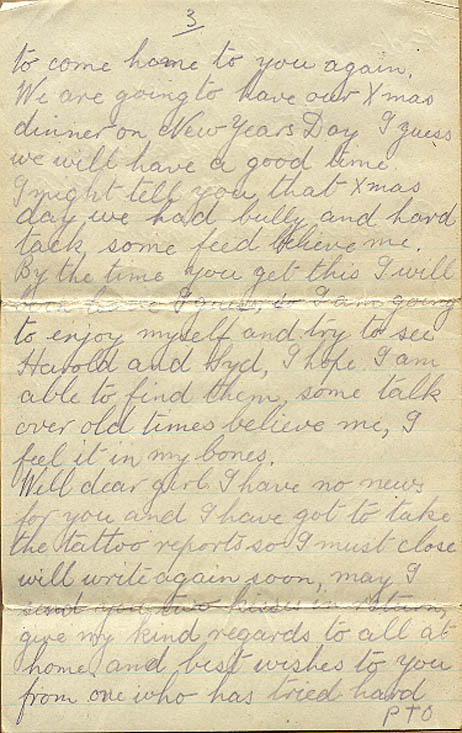 3
to come home to you again.
We are going to have our Xmas
dinner on New Years Day I guess
we will have a good time.
I might tell you that Xmas
day we had bully and hard
tack some feed believe me.
By the time you get this I will
have I guess, so I am going
to enjoy myself and try to see
Harold and Syd, I hope I am
able to find them, some talk
over old times believe me, I
feel it in my bones.
Well dear girl I have no news
for you and I have got to take
the tattoo reports so I must close
will write again soon, may I
send you two kisses in return,
give my kind regards to all at
home and best wishes to you
from one who has tried hard
PTO